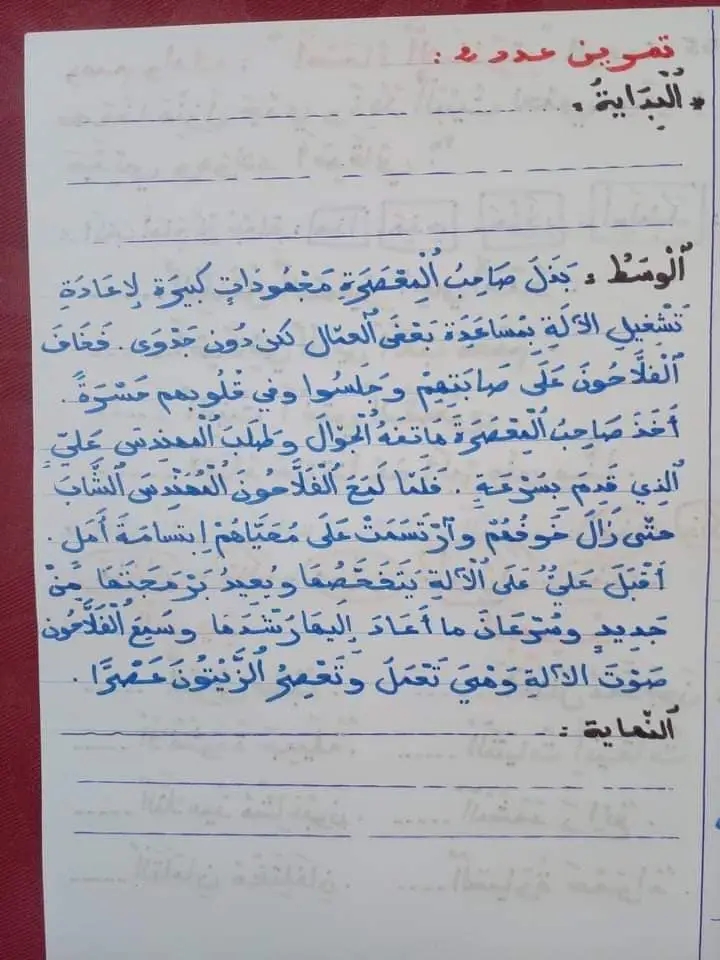 تمرين عدد و :
* اَلْبِدَايَةُ :
اَلْوَسَطُ : بَذَلَ صَاحِبُ الْمِعْصَرَةِ مَجْهُودَاتٍ كَبِيرَة لِإعَادَةِ
تَشْغِيلِ الآلَةِ بِمُسَاعَدَة بَعْضِ العمّال لكن دُونَ جَدْوَى . فَخَافَ
اَلْفَلَّاحُونَ عَلَى صَابَتِهِمْ وَجَلَسُوا وفي قُلُوبِهم حَسْرَةً .
أخَذَ صَاحِبُ الْمِعْصَرَةَ هَاتفهُ الْجوّال وَطَلَبَ المهندس عَلِيّ
الّذِي قَدِمَ بِسُرْعَةٍ . فَلَمّا لَمَحَ اَلْفَلّاحُونَ الْمُهَنْدِسَ الشّابَ
حتّى زَالَ خَوفُهُمْ وآرْتَسَمَتْ عَلَى مُحَيّاهُمْ اِبتسامَةَ أمَلٍ .
أقْبَلَ عَلِيٌّ عَلَى الْآلَةِ يَتَفَحَّصُهَا ويُعِيدُ بَرْمَجَتَهَا مِنْ
جَدِيدٍ وسُرْعَانَ ما أعَادَ إليها رُشْدَهَا وسَمِعَ الْفَلّاحُون
صَوْتَ الآلَةِ وَهْيَ تَعْمَلُ وتَعْصِرُ الزَّيْتُونَ عَصْرًا .
اَلنّهاية :